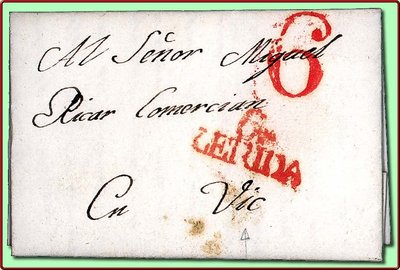 Al Señor Miguel
6
Ricar Comercian
LERIDA
En Vic